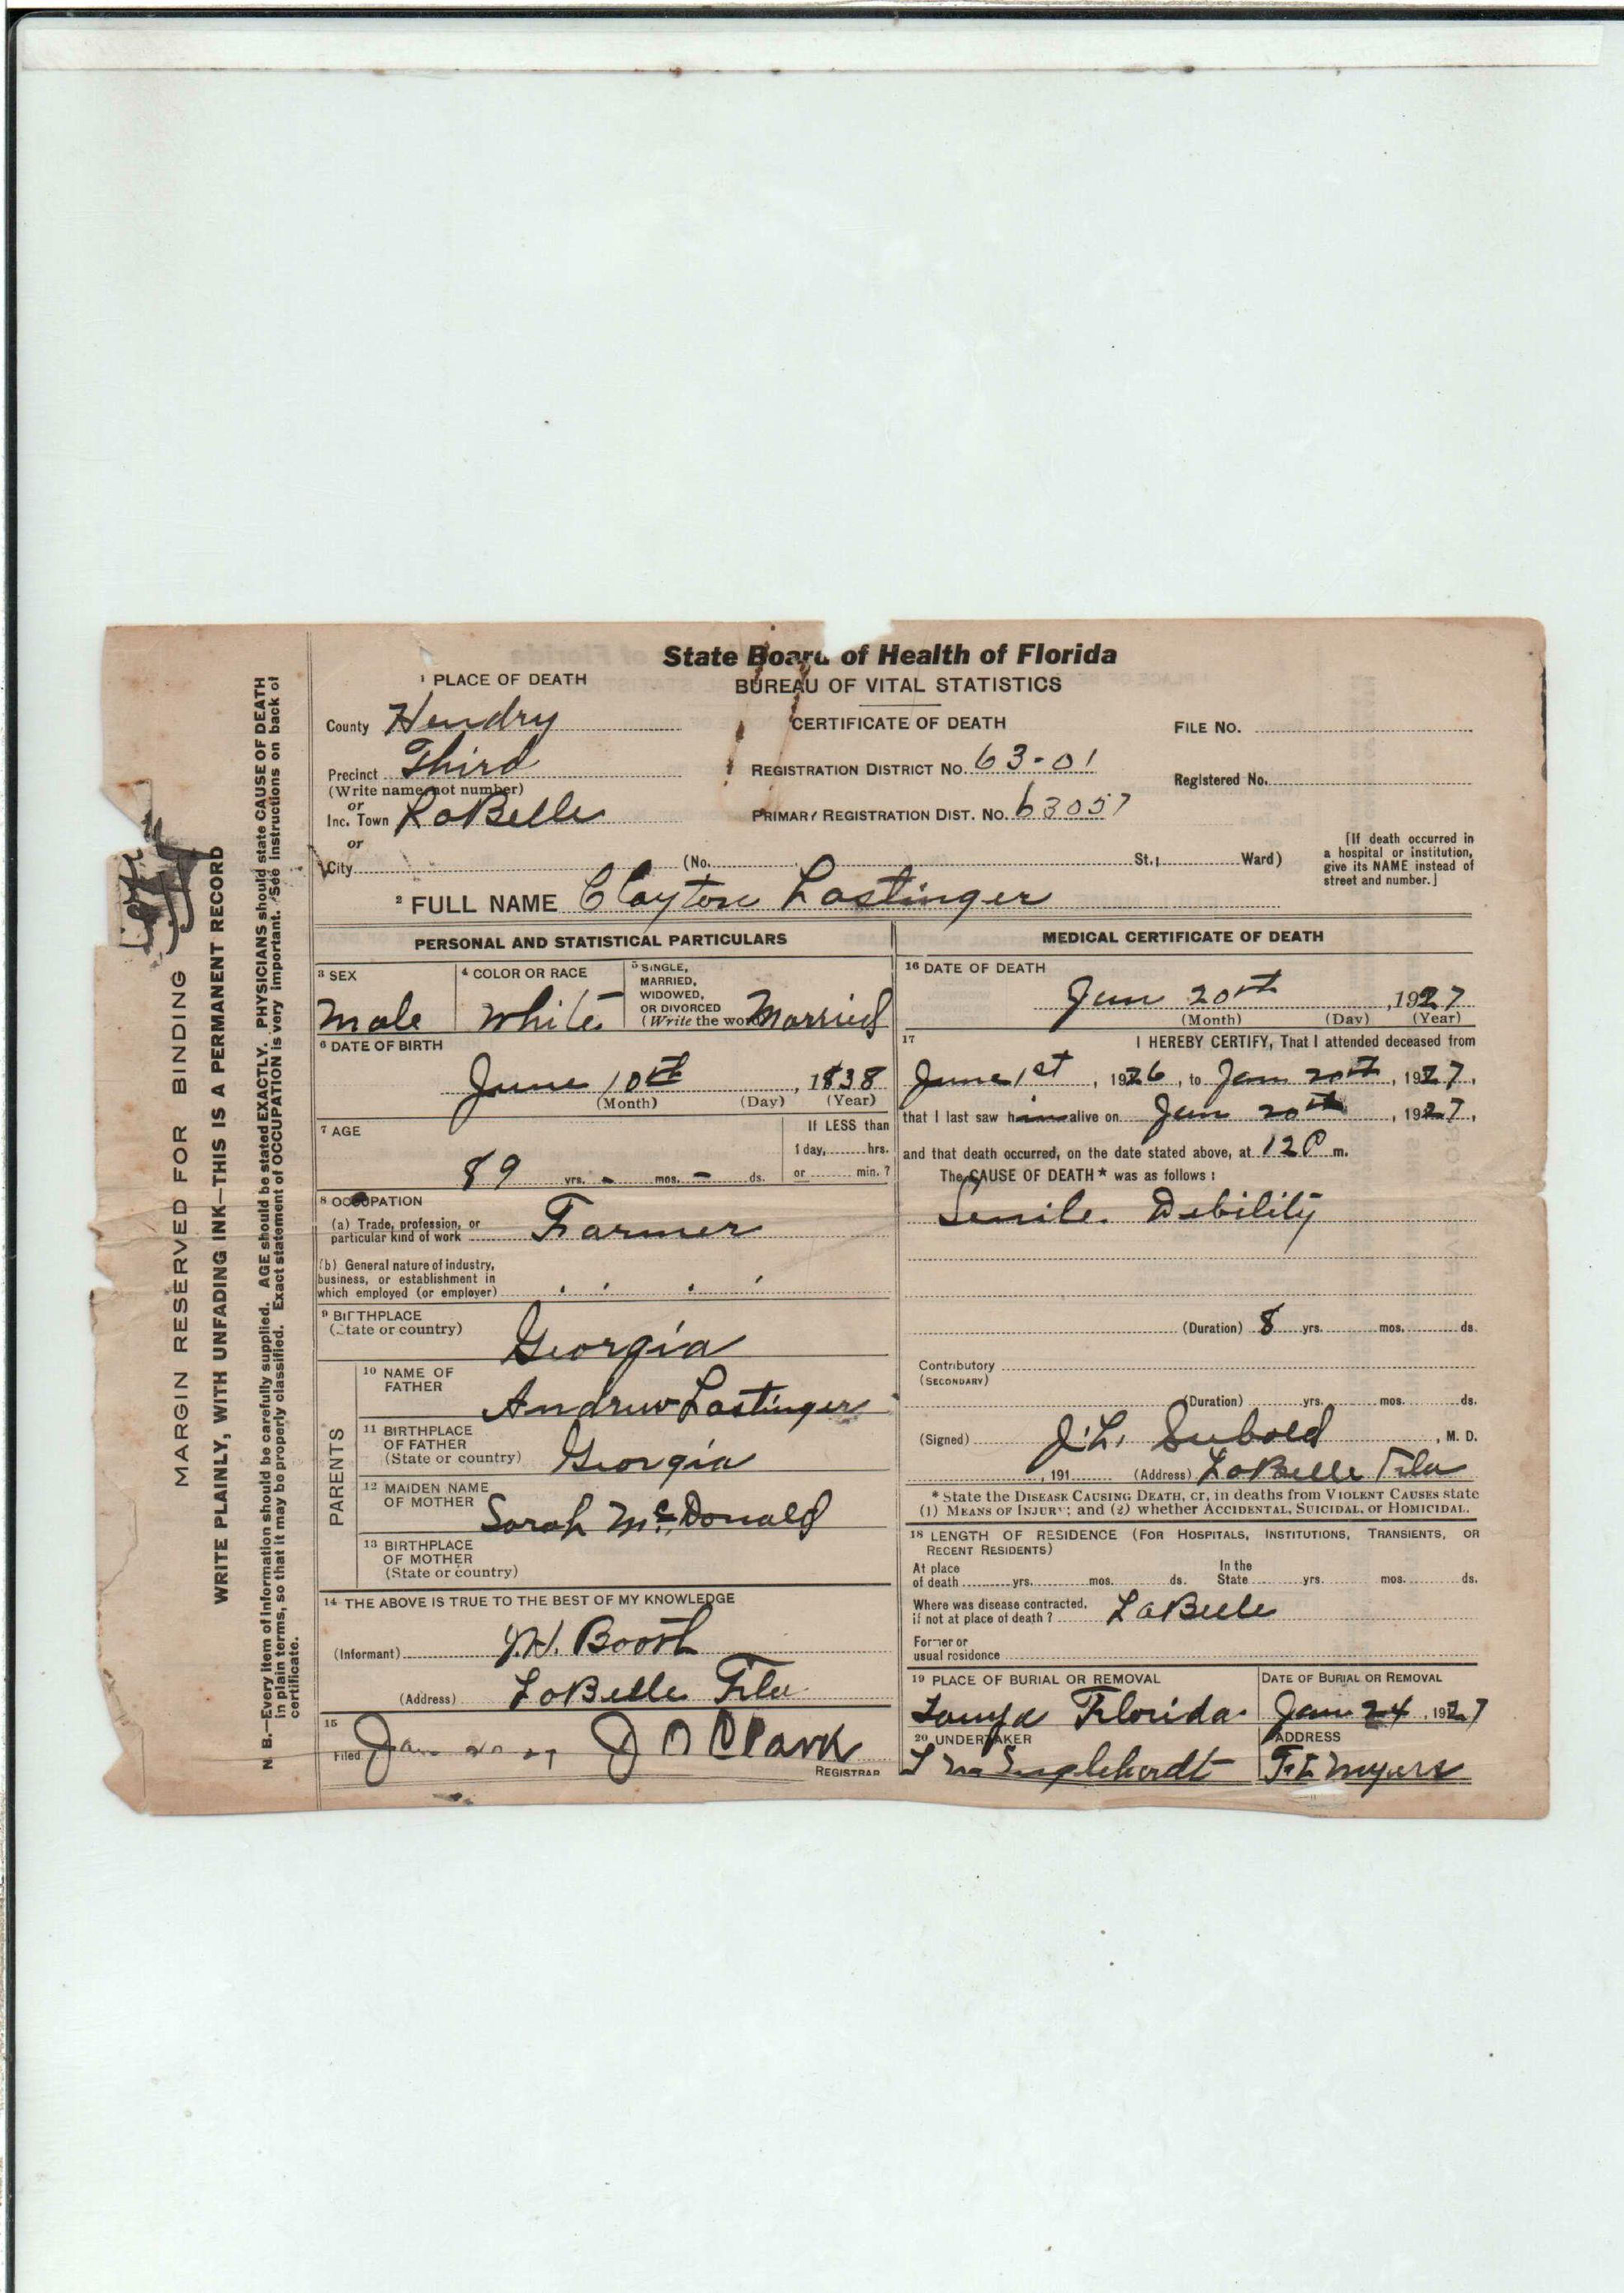 State Board of Health of Florida
BUREAU OF VITAL STATISTICS
CERTIFICATE OF DEATH
1 PLACE OF DEATH
County Hendry
Precinct Third
(Write name, not number)
or
Inc. Town LaBelle
or
City (No. St., Ward)
REGISTRATION DISTRICT NO. 63-01
PRIMARY REGISTRATION DIST. NO. 63057
FILE NO.
Registered No.
[If death occurred in
a hospital or institution,
give its NAME instead of
street and number.]
2 FULL NAME Clayton Lastinger
PERSONAL AND STATISTICAL PARTICULARS
3 SEX
Male
4 COLOR OR RACE
White
5 SINGLE,
MARRIED,
WIDOWED,
OR DIVORCED
(Write the word) Married
6 DATE OF BIRTH
June 10th, 1838
(Month) (Day) (Year)
7 AGE
89 yrs. - mos. - ds.
If LESS than
1 day, hrs.
or min. ?
8 OCCUPATION
(a) Trade, profession, or
particular kind of work Farmer
(b) General nature of industry,
business, or establishment in
which employed (or employer)
9 BIRTHPLACE
(State or country)
Georgia
PARENTS
10 NAME OF
FATHER
Andrew Lastinger
11 BIRTHPLACE
OF FATHER
(State or country) Georgia
12 MAIDEN NAME
OF MOTHER
Sarah McDonald
13 BIRTHPLACE
OF MOTHER
(State or country)
14 THE ABOVE IS TRUE TO THE BEST OF MY KNOWLEDGE
(Informant) Booth
(Address) LaBelle Fla
15
Filed Jan 20 27 J O Clark
REGISTRAR
MEDICAL CERTIFICATE OF DEATH
16 DATE OF DEATH
Jan 20th, 1927
(Month) (Day) (Year)
17 I HEREBY CERTIFY, That I attended deceased from
June 1st, 1926, to Jan 20th, 1927,
that I last saw him alive on Jan 20th, 1927,
and that death occurred, on the date stated above, at 120 P m.
The CAUSE OF DEATH* was as follows:
Senile Debility
(Duration) 8 yrs. mos. ds.
Contributory
(SECONDARY)
(Duration) yrs. mos. ds.
(Signed) J. L. , M. D.
, 191 (Address) LaBelle Fla
* State the DISEASE CAUSING DEATH, or, in deaths from VIOLENT CAUSES state
(1) MEANS OF INJURY; and (2) whether ACCIDENTAL, SUICIDAL, or HOMICIDAL.
18 LENGTH OF RESIDENCE (FOR HOSPITALS, INSTITUTIONS, TRANSIENTS, OR
RECENT RESIDENTS)
At place In the
of death yrs. mos. ds. State yrs. mos. ds.
Where was disease contracted,
if not at place of death ? LaBelle
Former or
usual residence
19 PLACE OF BURIAL OR REMOVAL
Florida
DATE OF BURIAL OR REMOVAL
Jan 24, 1927
20 UNDERTAKER
ADDRESS
Ft Myers
MARGIN RESERVED FOR BINDING
WRITE PLAINLY, WITH UNFADING INK—THIS IS A PERMANENT RECORD
N. B.—Every item of information should be carefully supplied. AGE should be stated EXACTLY. PHYSICIANS should state CAUSE OF DEATH
in plain terms, so that it may be properly classified. Exact statement of OCCUPATION is very important. See instructions on back of
certificate.